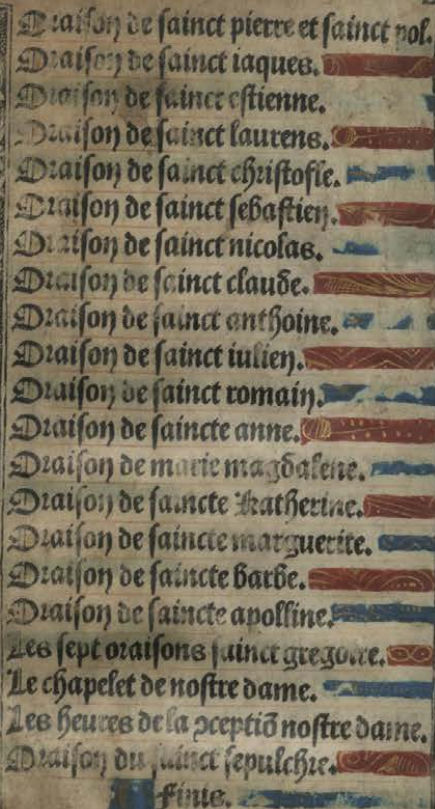 Oraison de sainct pierre et sainct pol.
Oraison de sainct iaques.
Oraison de sainct estienne.
Oraison de sainct laurens.
Oraison de sainct christofle.
Oraison de sainct sebastien.
Oraison de sainct nicolas.
Oraison de sainct claude.
Oraison de sainct anthoine.
Oraison de sainct iulien.
Oraison de sainct romain.
Oraison de saincte anne.
Oraison de marie magdalene.
Oraison de saincte katherine.
Oraison de saincte marguerite.
Oraison de saincte barbe.
Oraison de saincte apolline.
Les sept oraisons sainct gregoire.
Le chapelet de nostre dame.
Les heures de la ↄceptiō nostre dame.
Oraison du sainct sepulchre.
Finis.